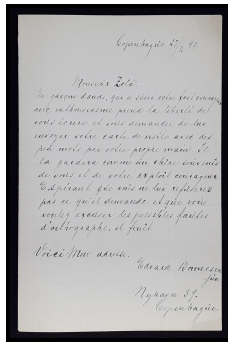 Copenhague 27/2 98
Monsieur Zola
Un garçon danois, qui a suivi votre fait courageux
avec enthousiasme prend la liberté de
vous écrire et vous demander de lui
envoyer votre carte de visite avec des
peu mots par votre propre main. Il
la gardera comme un chère souvenir
de vous et de votre exploit courageux
Espérant que vous ne lui refuserez
pas ce qu'il demande et que vous
voulez excuser les possibles fautes
d'orthographe, il finit.
Voici mon adresse.
Edvard
Nyhavn 39.
Copenhague.